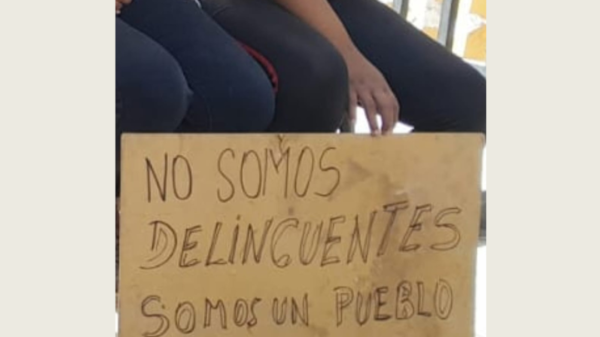 NO SOMOS
DELINCUENTES
SOMOS UN PUEBLO